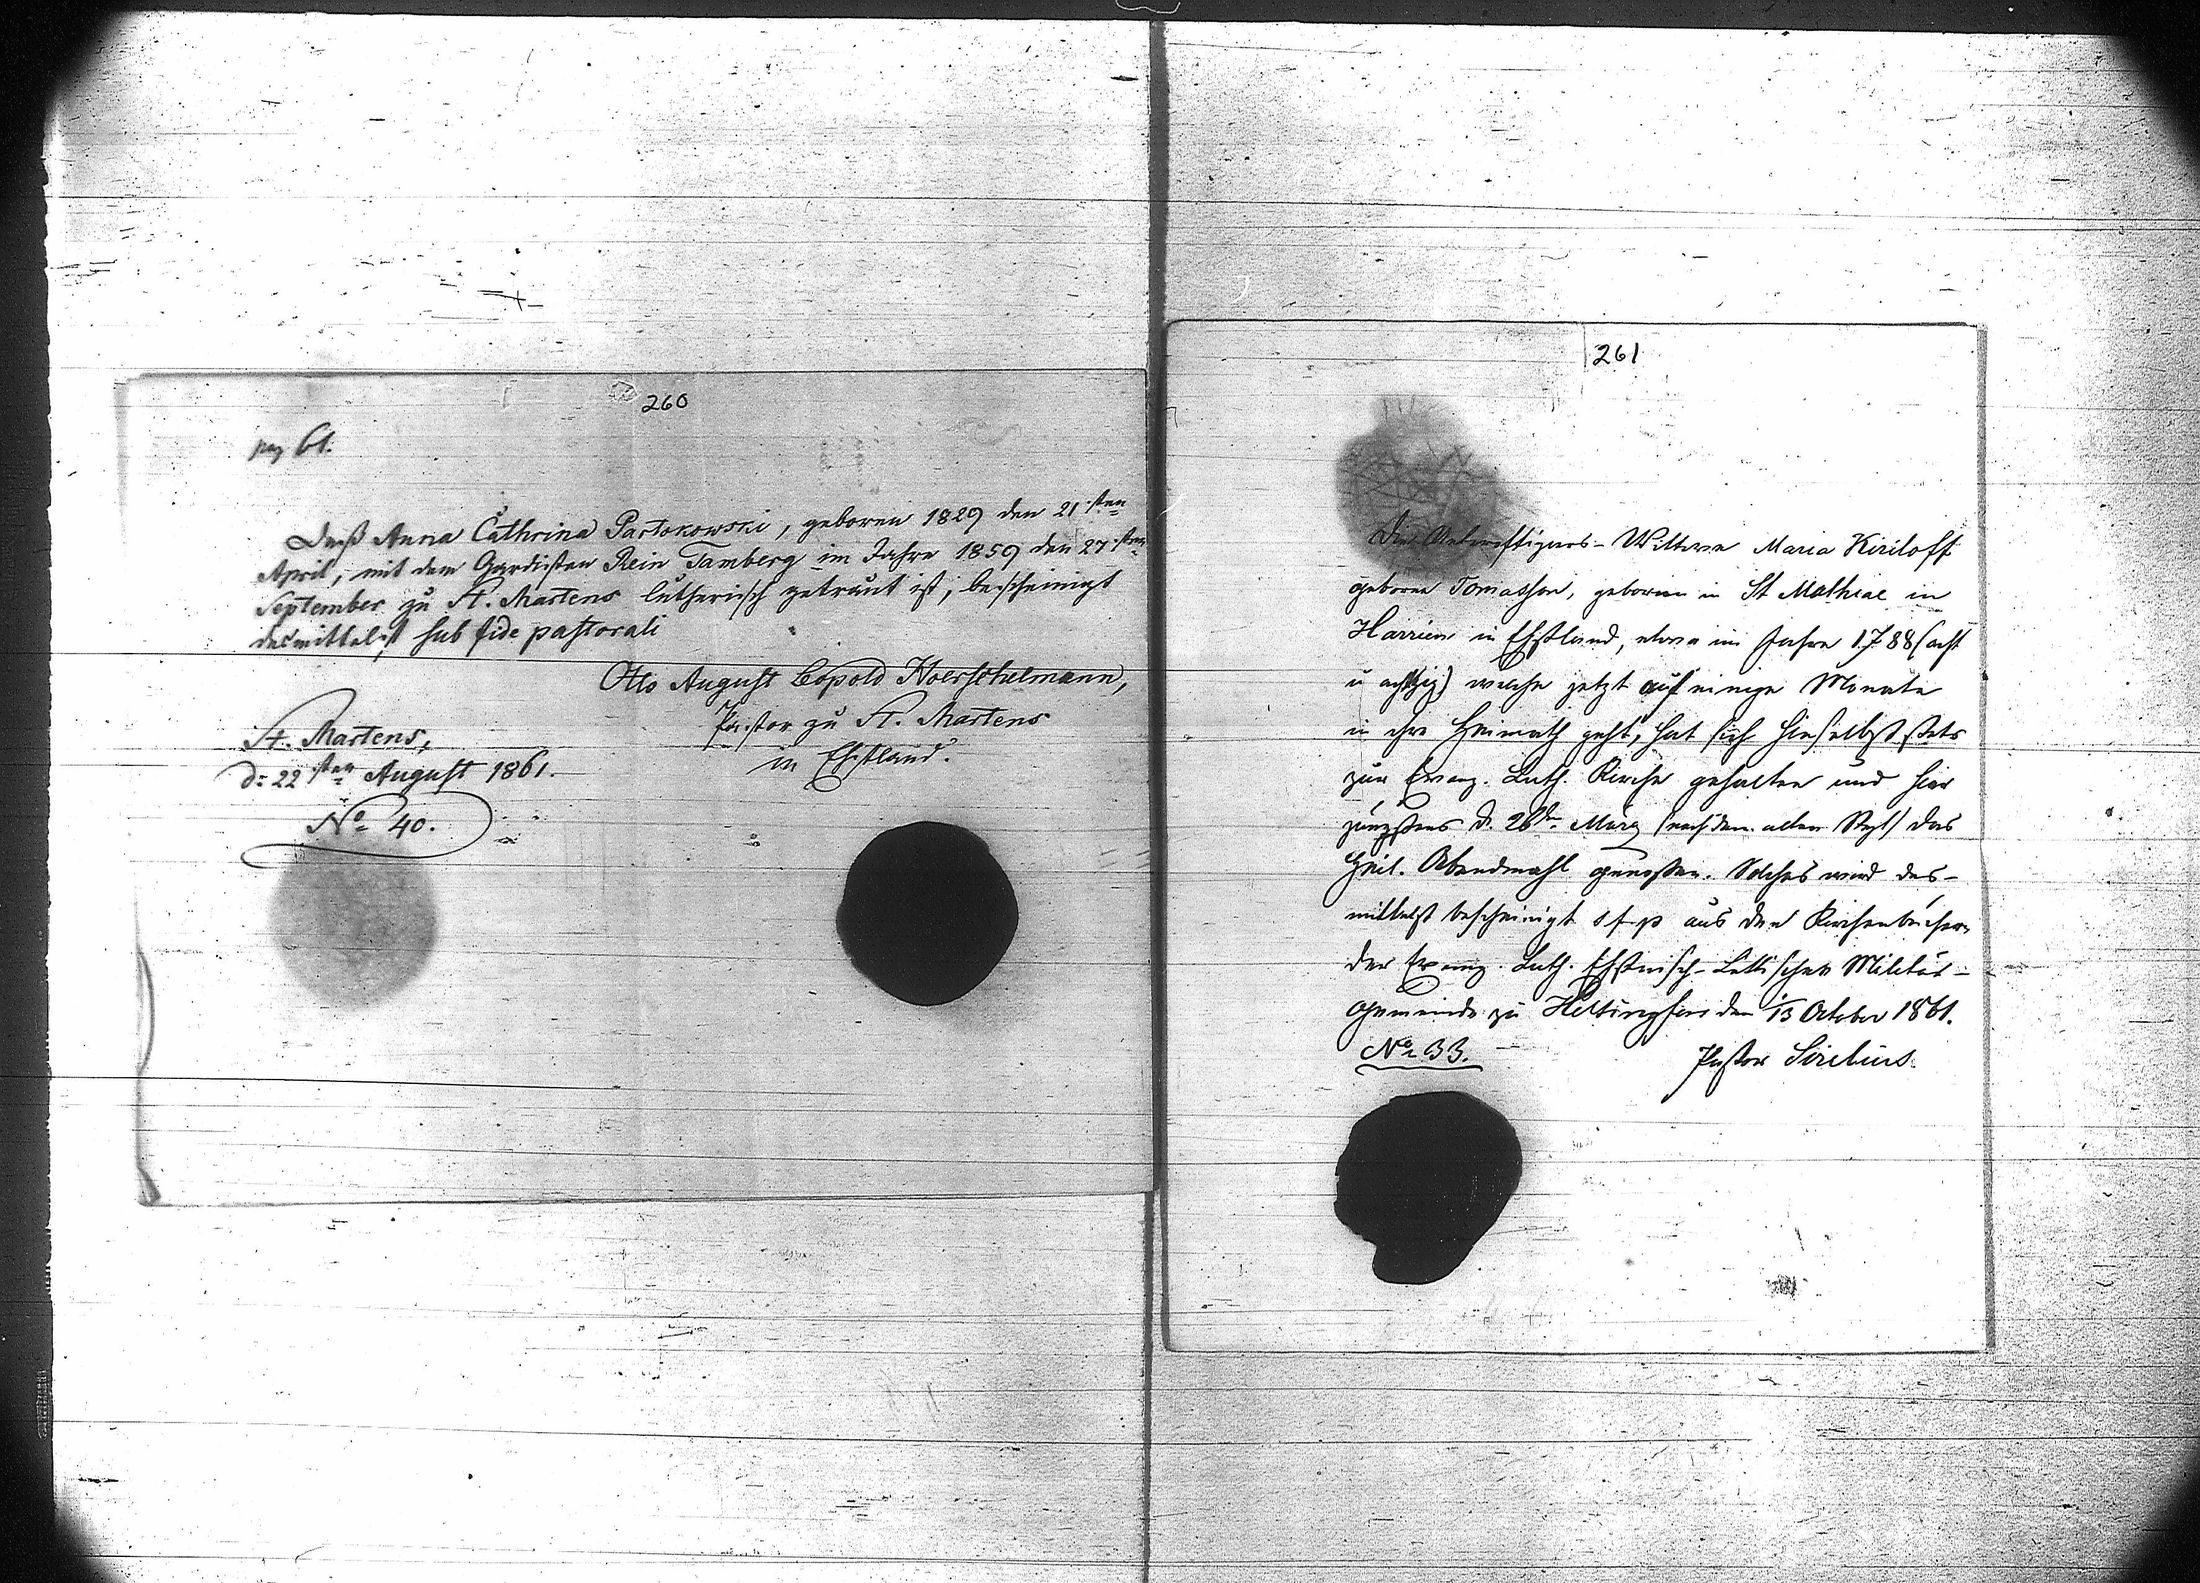 260
pag 61.
Daß Anna Cathrina Partokowski, geboren 1829 den 21sten
April, mit dem Gardisten Rein Tamberg im Jahre 1859 den 27sten
September zu St. Martens lutherisch getraut ist, bescheinigt
desmittelst sub fide pastorali
Otto August Leopold Hoerschelmann,
Pastor zu St. Martens
in Ehstland.
St. Martens,
d. 22sten August 1861.
No 40.
261
Die Wittwe Maria Kiriloff
geborene Tomasson, geboren in St Mathiae in
Harrien in Ehstland, etwa im Jahre 1788 (acht
u achtzig) welche jetzt auf einige Monate
in ihre Heimath geht, hat sich hieselbst stets
zur Evang. Luth. Kirche gehalten und hier
jüngstens d. 26ten März (nach dem alten Styl) das
Heil. Abendmahl genossen. Solches wird des-
mittelst bescheinigt s f p aus den Kirchenbüchern
der Evang. Luth. Ehstnisch-Lettischen Militär-
gemeinde zu Helsingfors den 1/13 October 1861.
No 33.
Pastor Sirelius.